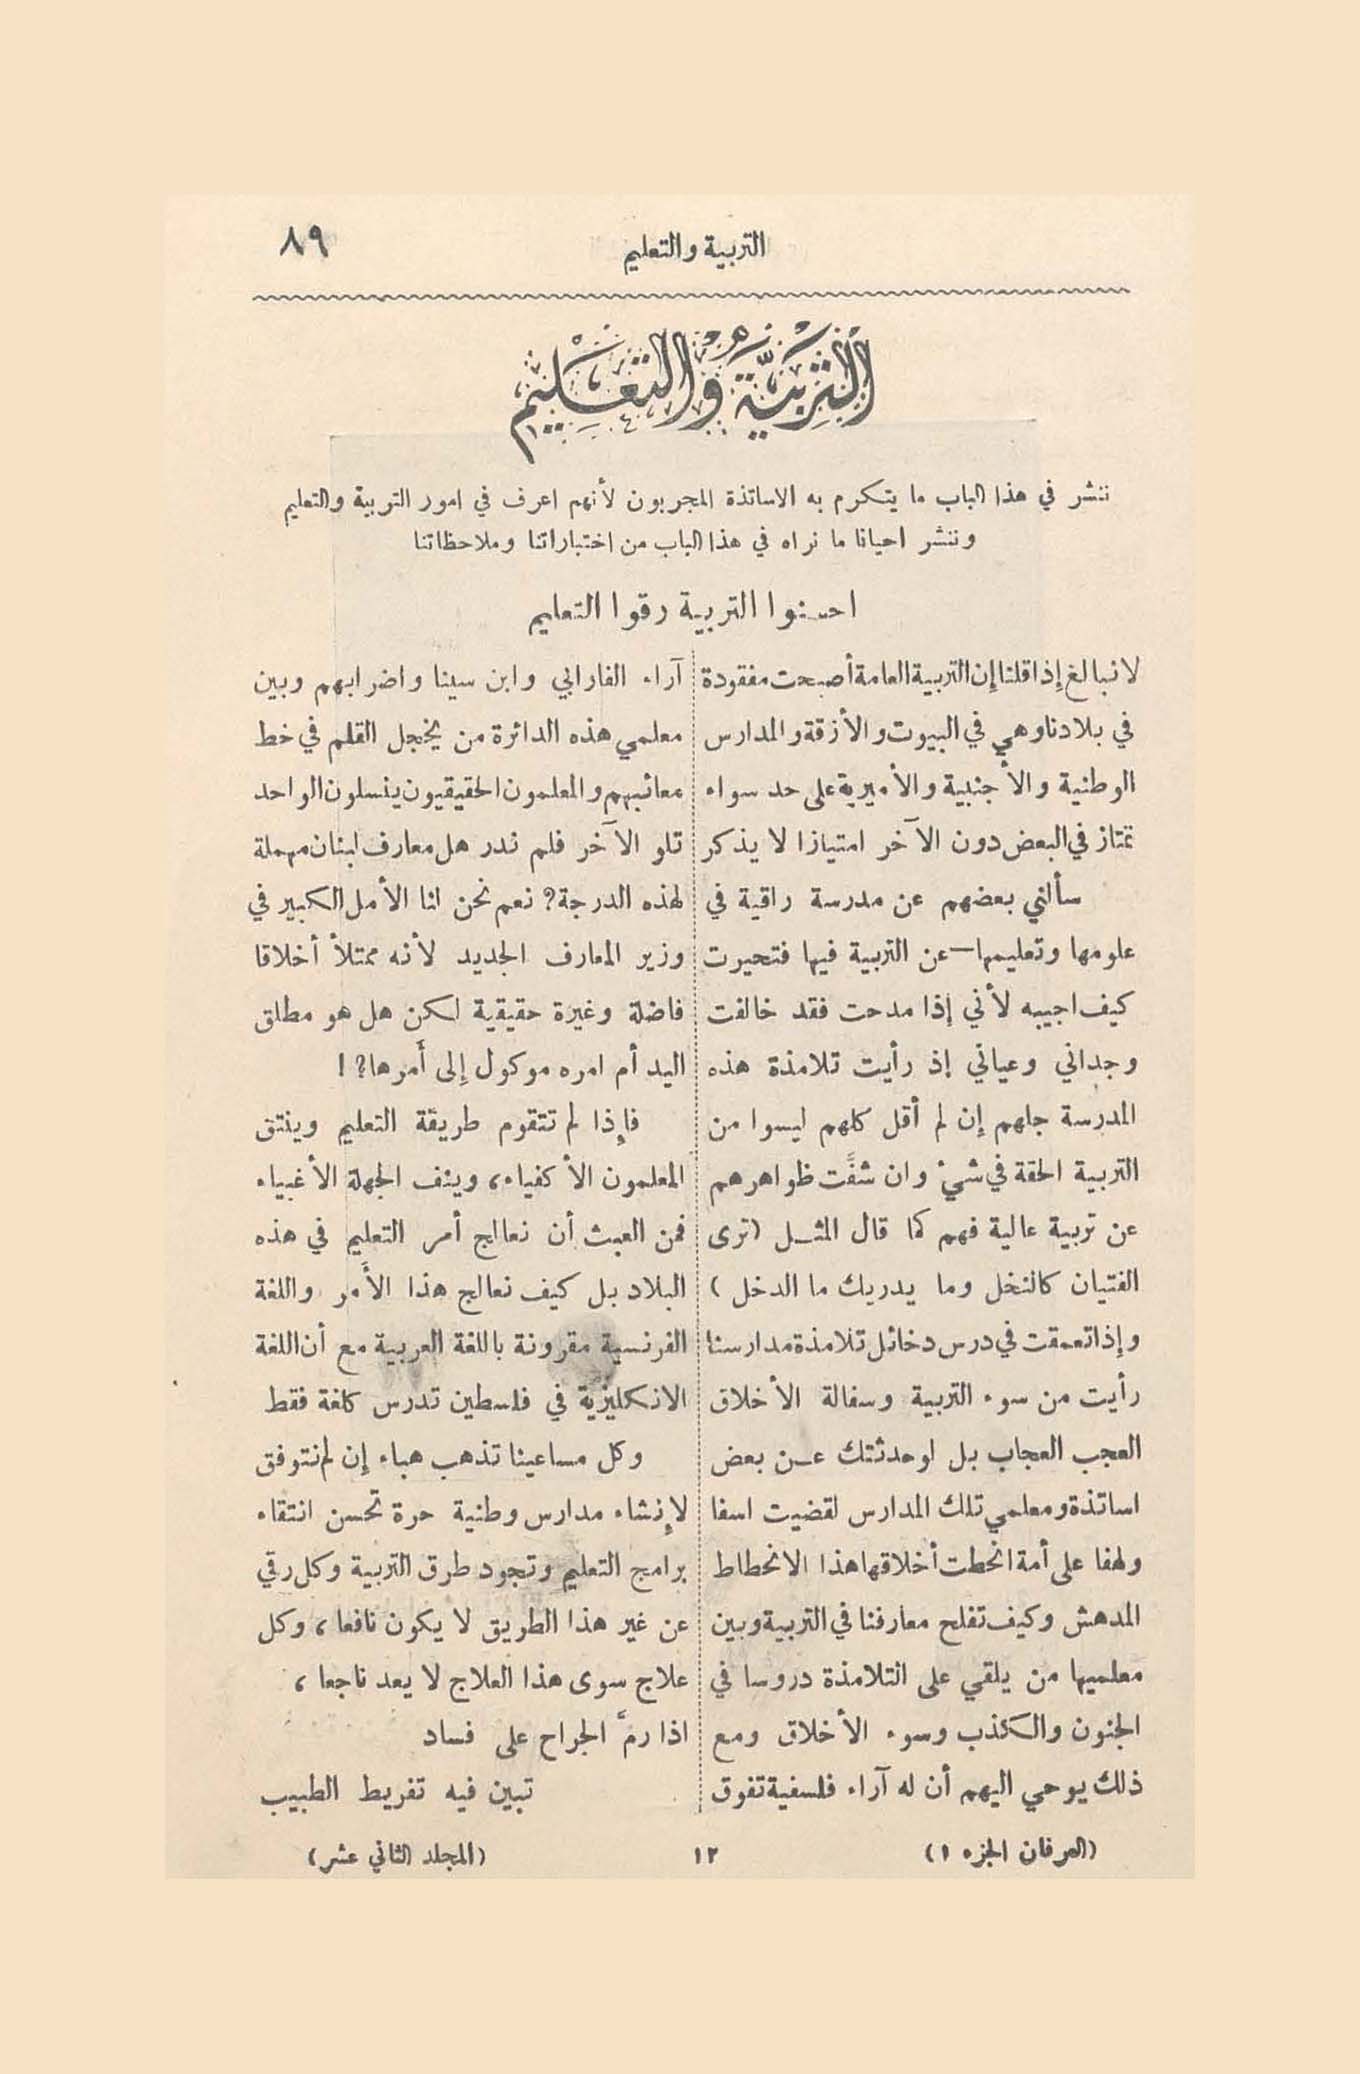 التربية والتعليم
٨٩
التربية والتعليم
ننشر في هذا الباب ما يتكرم به الاساتذة المجربون لأنهم اعرف في امور التربية والتعليم
وننشر احيانا ما نراه في هذا الباب من اختباراتنا وملاحظاتنا
احسنوا التربية رقوا التعليم
لا نبالغ إذا قلنا إن التربية العامة أصبحت مفقودة
في بلادنا وهي في البيوت والأزقة والمدارس
الوطنية والأجنبية والأميرية على حد سواء
تمتاز في البعض دون الآخر امتيازا لا يذكر
سألني بعضهم عن مدرسة راقية في
علومها وتعليمها — عن التربية فيها فتحيرت
كيف اجيبه لأني إذا مدحت فقد خالفت
وجداني وعياني إذ رأيت تلامذة هذه
المدرسة جلهم إن لم أقل كلهم ليسوا من
التربية الحقة في شيء وان شفَّت ظواهرهم
عن تربية عالية فهم كما قال المثل (ترى
الفتيان كالنخل وما يدريك ما الدخل)
وإذا تعمقت في درس دخائل تلامذة مدارسنا
رأيت من سوء التربية وسفالة الأخلاق
العجب العجاب بل لو حدثتك عن بعض
اساتذة ومعلمي تلك المدارس لقضيت اسفا
ولهفا على أمة انحطت أخلاقها هذا الانحطاط
المدهش وكيف تفلح معارفنا في التربية وبين
معلميها من يلقي على التلامذة دروسا في
الجنون والكذب وسوء الأخلاق ومع
ذلك يوحي اليهم أن له آراء فلسفية تفوق
آراء الفارابي وابن سينا واضرابهم وبين
معلمي هذه الدائرة من يخجل القلم في خط
معائبهم والمعلمون الحقيقيون ينسلون الواحد
تلو الآخر فلم ندر هل معارف لبنان مهملة
لهذه الدرجة؟ نعم نحن لنا الأمل الكبير في
وزير المعارف الجديد لأنه ممتلأ أخلاقا
فاضلة وغيرة حقيقية لكن هل هو مطلق
اليد أم امره موكول إلى أمرها؟!
فإذا لم تتقوم طريقة التعليم وينتق
المعلمون الأكفياء، وينف الجهلة الأغبياء
فمن العبث أن نعالج أمر التعليم في هذه
البلاد بل كيف نعالج هذا الأمر واللغة
الفرنسية مقرونة باللغة العربية مع أن اللغة
الانكليزية في فلسطين تدرس كلغة فقط
وكل مساعينا تذهب هباء إن لم نتوفق
لإنشاء مدارس وطنية حرة تحسن انتقاء
برامج التعليم وتجود طرق التربية وكل رقي
عن غير هذا الطريق لا يكون نافعا، وكل
علاج سوى هذا العلاج لا يعد ناجعا،
اذا رمَّ الجراح على فساد
تبين فيه تفريط الطبيب
(العرفان الجزء ١)
١٢
(المجلد الثاني عشر)